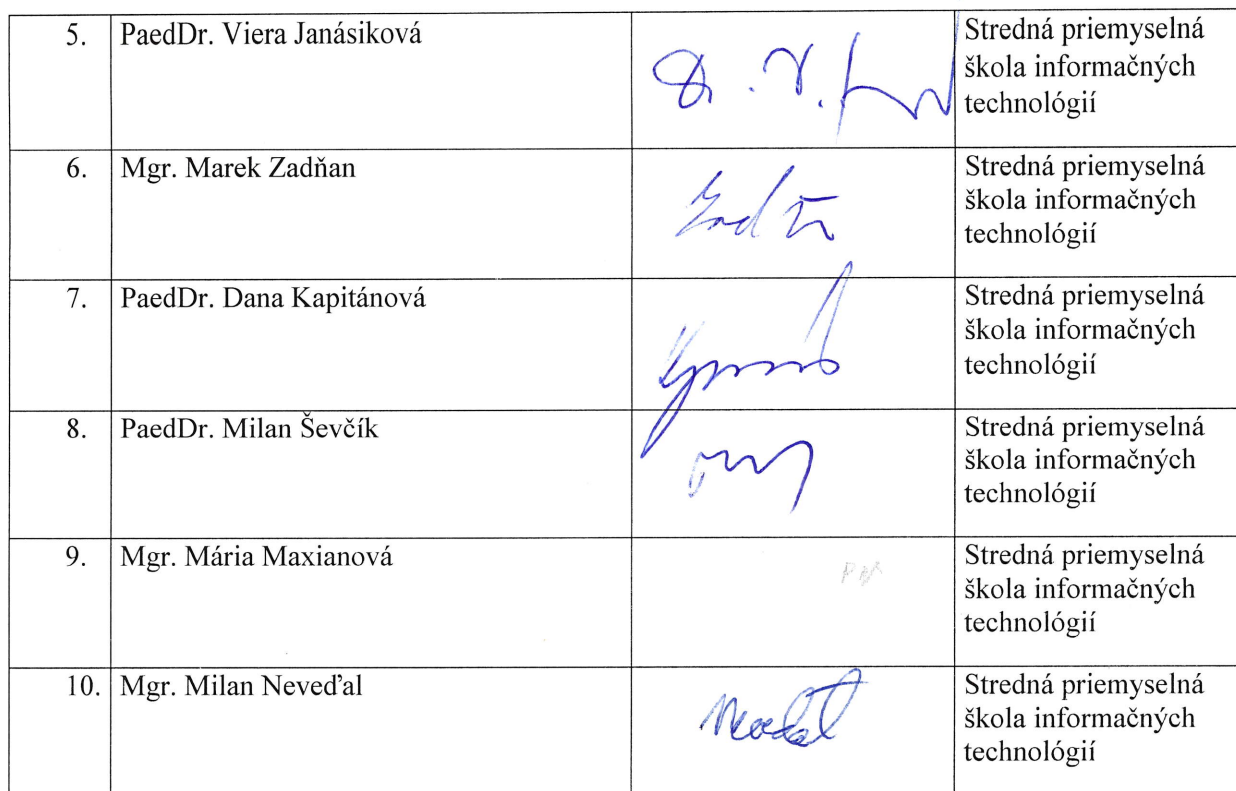 5. PaedDr. Viera Janásiková
Stredná priemyselná
škola informačných
technológií
6. Mgr. Marek Zadňan
Stredná priemyselná
škola informačných
technológií
7. PaedDr. Dana Kapitánová
Stredná priemyselná
škola informačných
technológií
8. PaedDr. Milan Ševčík
Stredná priemyselná
škola informačných
technológií
9. Mgr. Mária Maxianová
PN
Stredná priemyselná
škola informačných
technológií
10. Mgr. Milan Neveďal
Stredná priemyselná
škola informačných
technológií